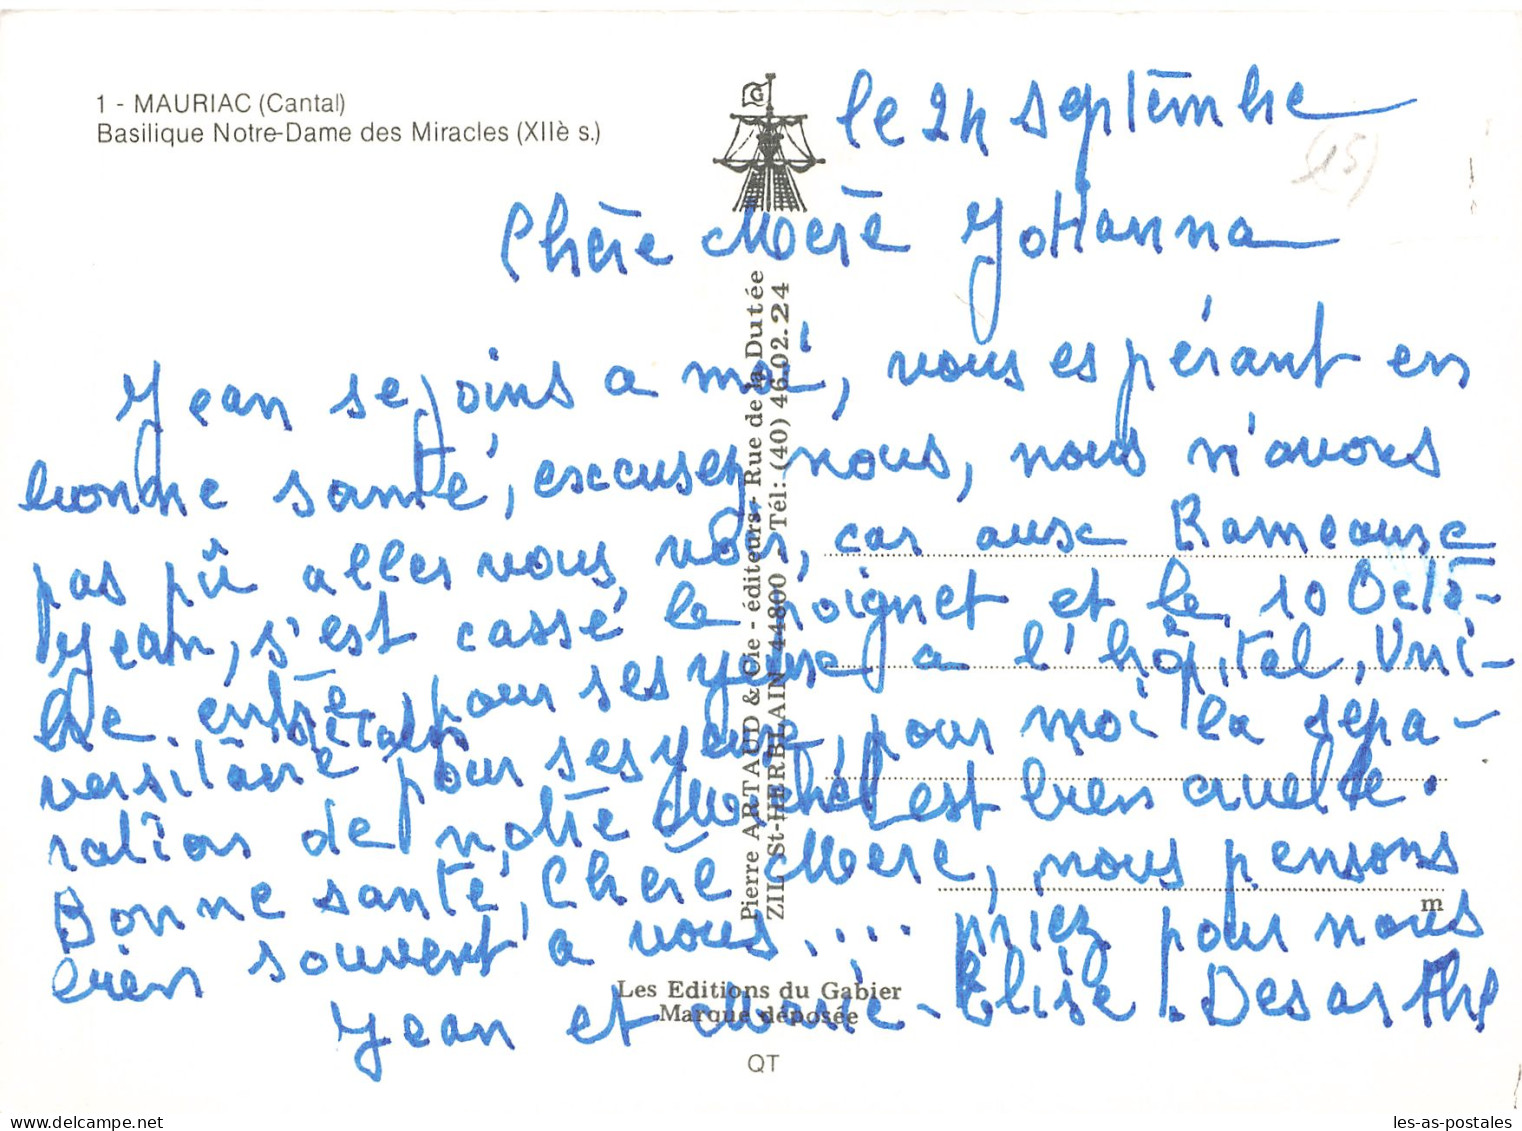 1 - MAURIAC (Cantal)
Basilique Notre-Dame des Miracles (XIIè s.)
le 24 septembre
(15)
Chère Mère Johanna
Jean se joins a moi, vous espérant en
bonne santé, excusez nous, nous n'avons
pas pû aller vous voir, car aux Rameaux
Jean, s'est cassé le poignet et le 10 Octo-
bre entre pour ses yeux a l'hôpital, Uni-
versitaire pour ses yeux, pour moi la sépa-
ration de notre Michel est bien cruelle.
Bonne santé, Chère Mère, nous pensons
bien souvent à vous.... priez pour nous
Jean et Marie-Elise. Desarthe
Pierre ARTAUD & Cie - éditeurs - Rue de la Dutée
ZIL St-HERBLAIN 44800 - Tél: (40) 46.02.24
m
Les Editions du Gabier
Marque déposée
QT
les-as-postales